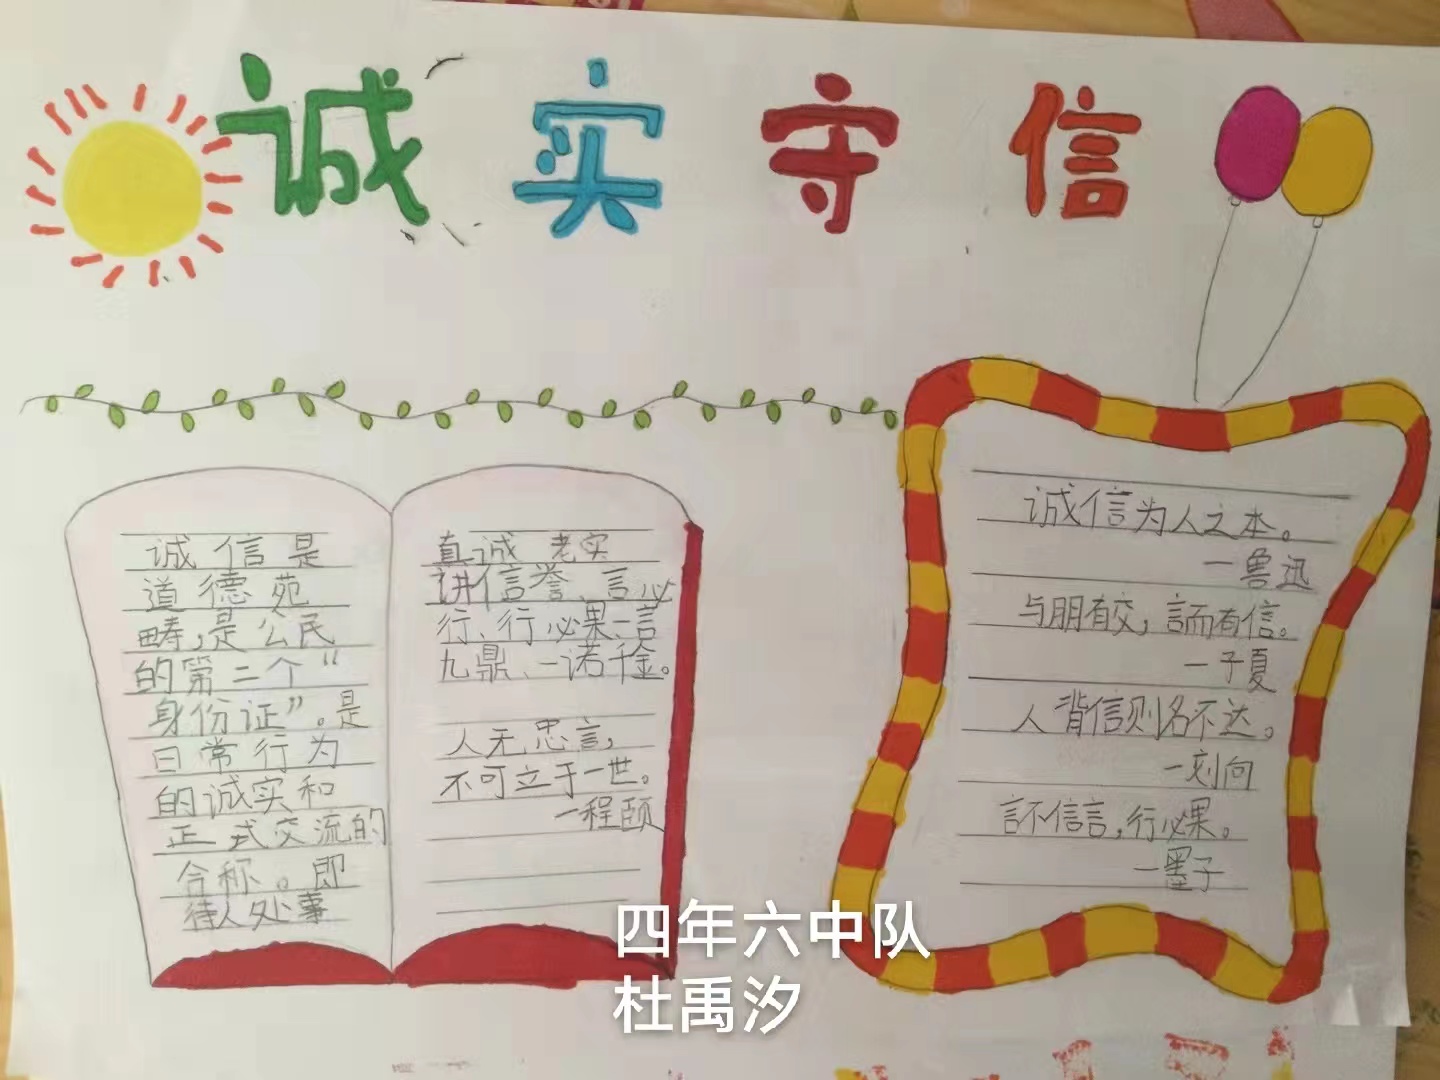 诚实守信
诚信是
道德苑
畴,是公民
的第二个“
身份证”。是
日常行为
的诚实和
正式交流的
合称。即
待人处事
真诚 老实
讲信誉、言必
行、行必果、一言
九鼎、一诺千金。
人无忠言,
不可立于一世。
一程颐
诚信为人之本。
一鲁迅
与朋有交,言而有信。
一子夏
人背信则名不达。
一刘向
言不信言,行必果。
一墨子
四年六中队
杜禹汐